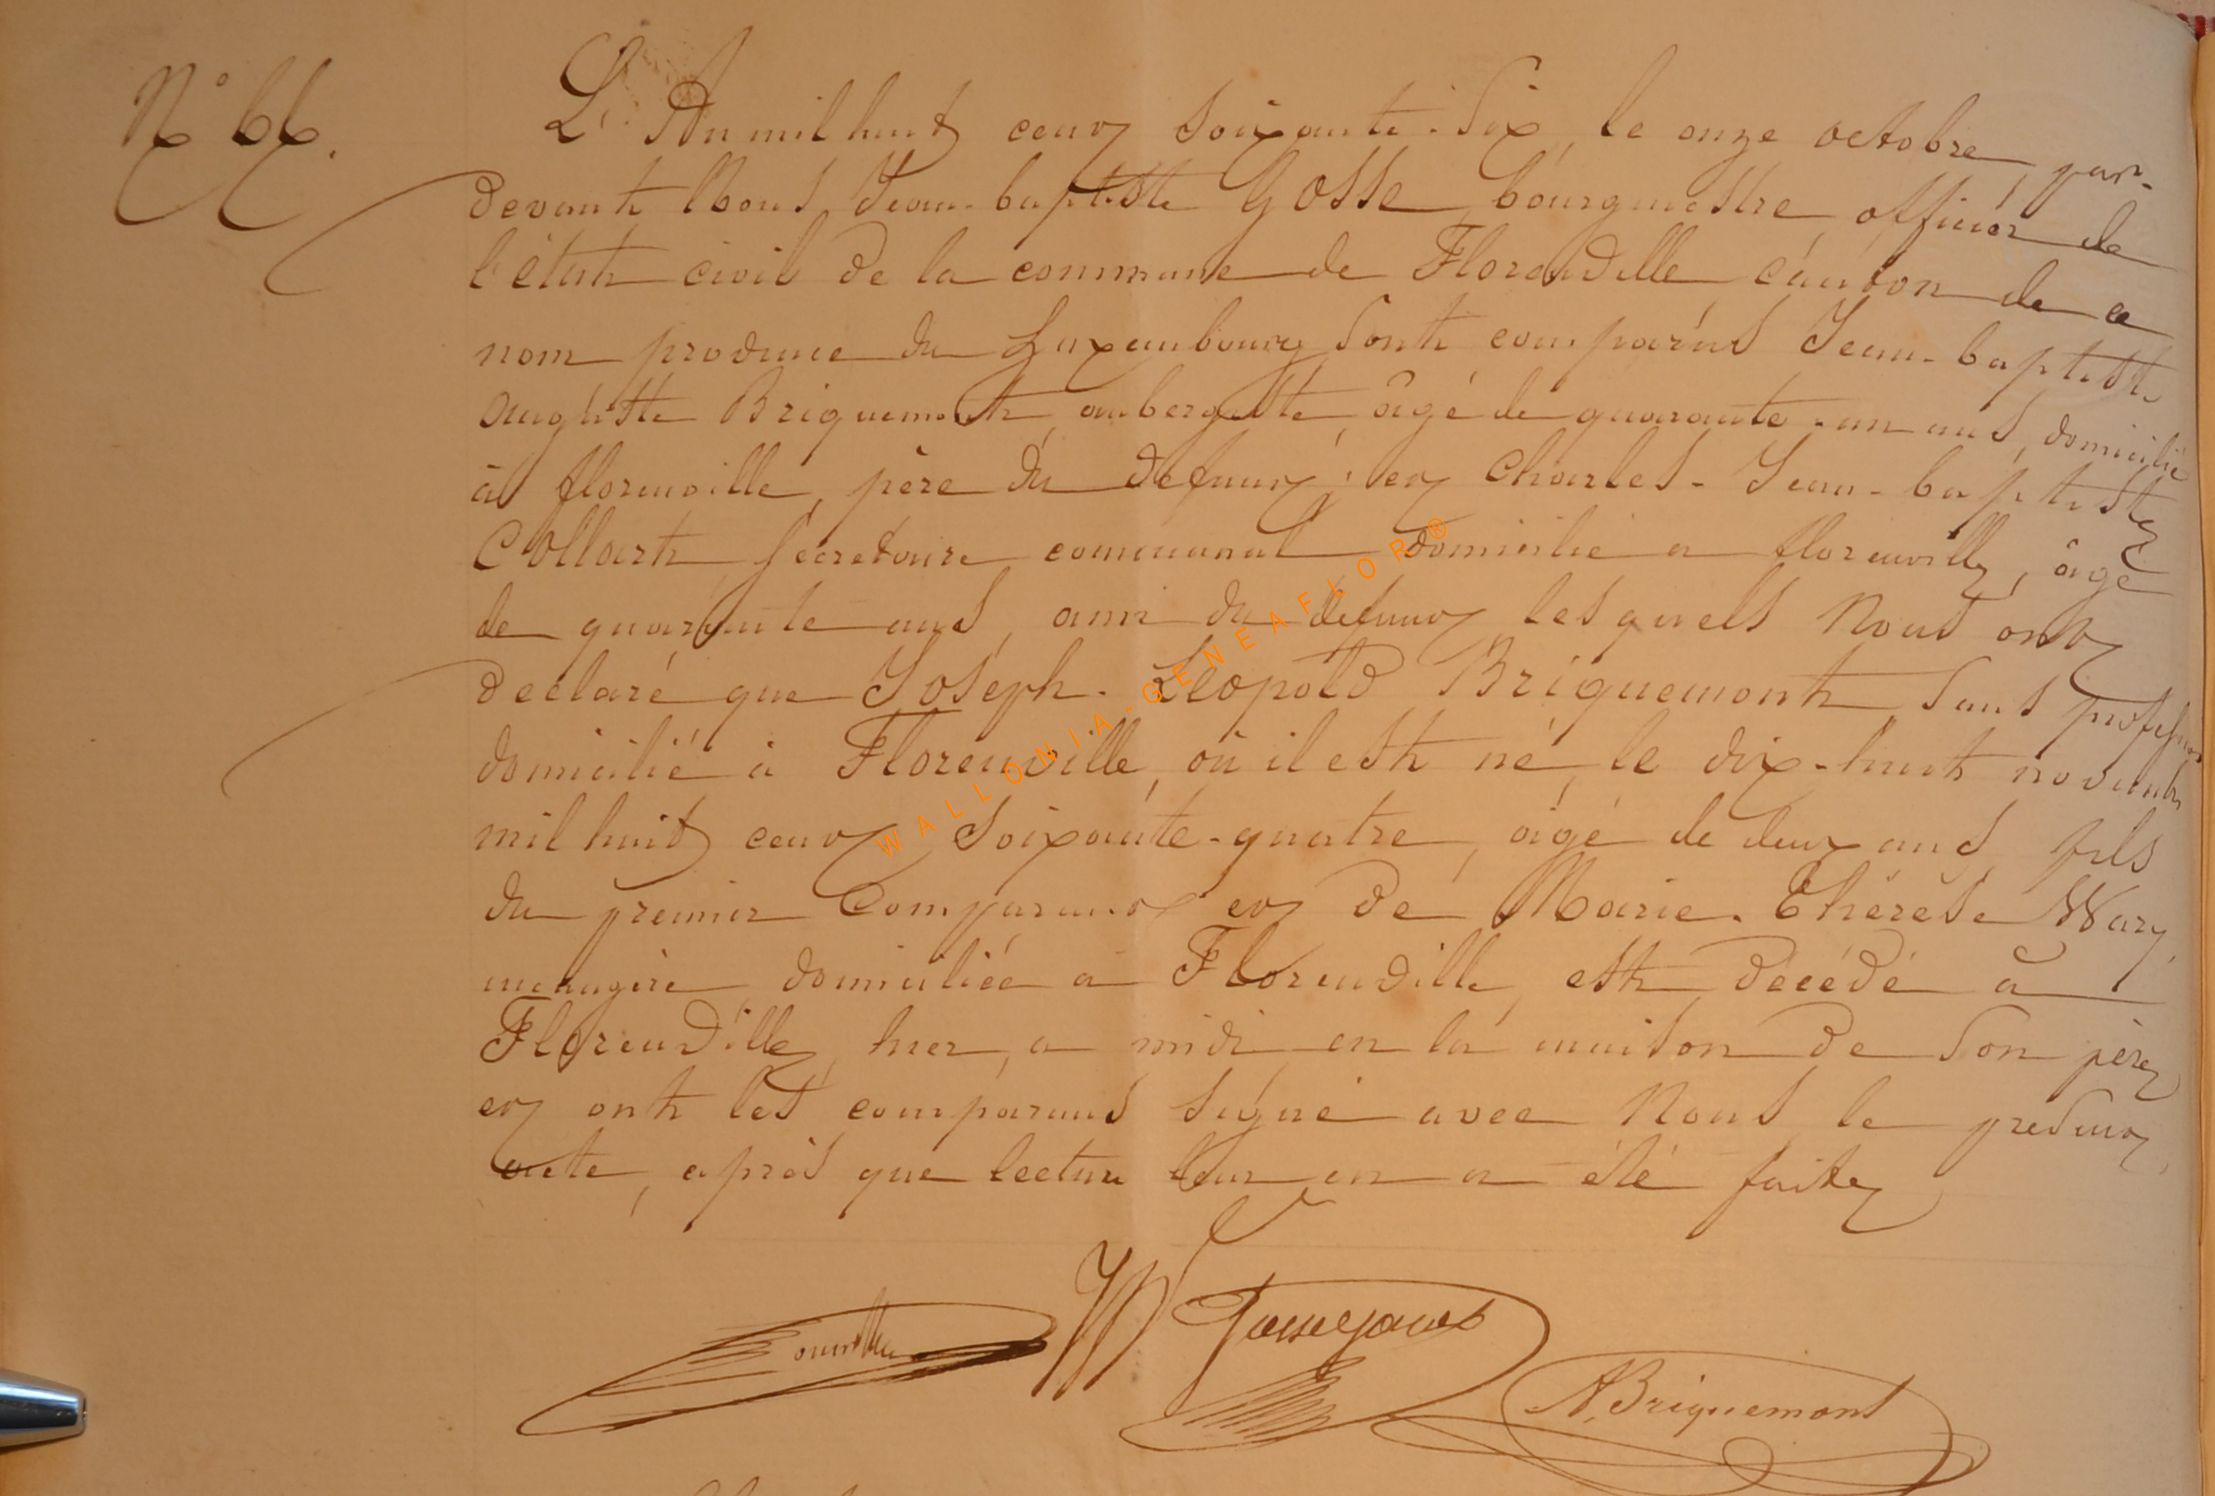 N° 66.
L'An mil huit cent soixante-six, le onze octobre, par-
devant Nous Jean-baptiste Gosse, bourgmestre, officier de
l'état civil de la commune de Florenville canton de ce
nom province du Luxembourg sont comparus Jean-baptiste
Auguste Briquemont, aubergiste, âgé de quarante-un ans, domicilié
à florenville, père du défunt; et Charles-Jean-baptiste
Collart, secrétaire communal domicilié a florenville, âgé
de quarante ans, ami du defunt lesquels Nous ont
declaré que Joseph-Léopold Briquemont sans profession
domicilié à Florenville, où il est né, le dix-huit novembre
mil huit cent soixante-quatre, âgé de deux ans, fils
du premier Comparant et de Marie-Thérèse Wary,
menagère, domiciliée à Florenville, est décédé à
Florenville, hier, a midi en la maison de son père
et ont les comparans signé avec Nous le présent
acte, après que lecture leur en a été faite
A, Briquemont
WALLONIA-GENEAFLOR®